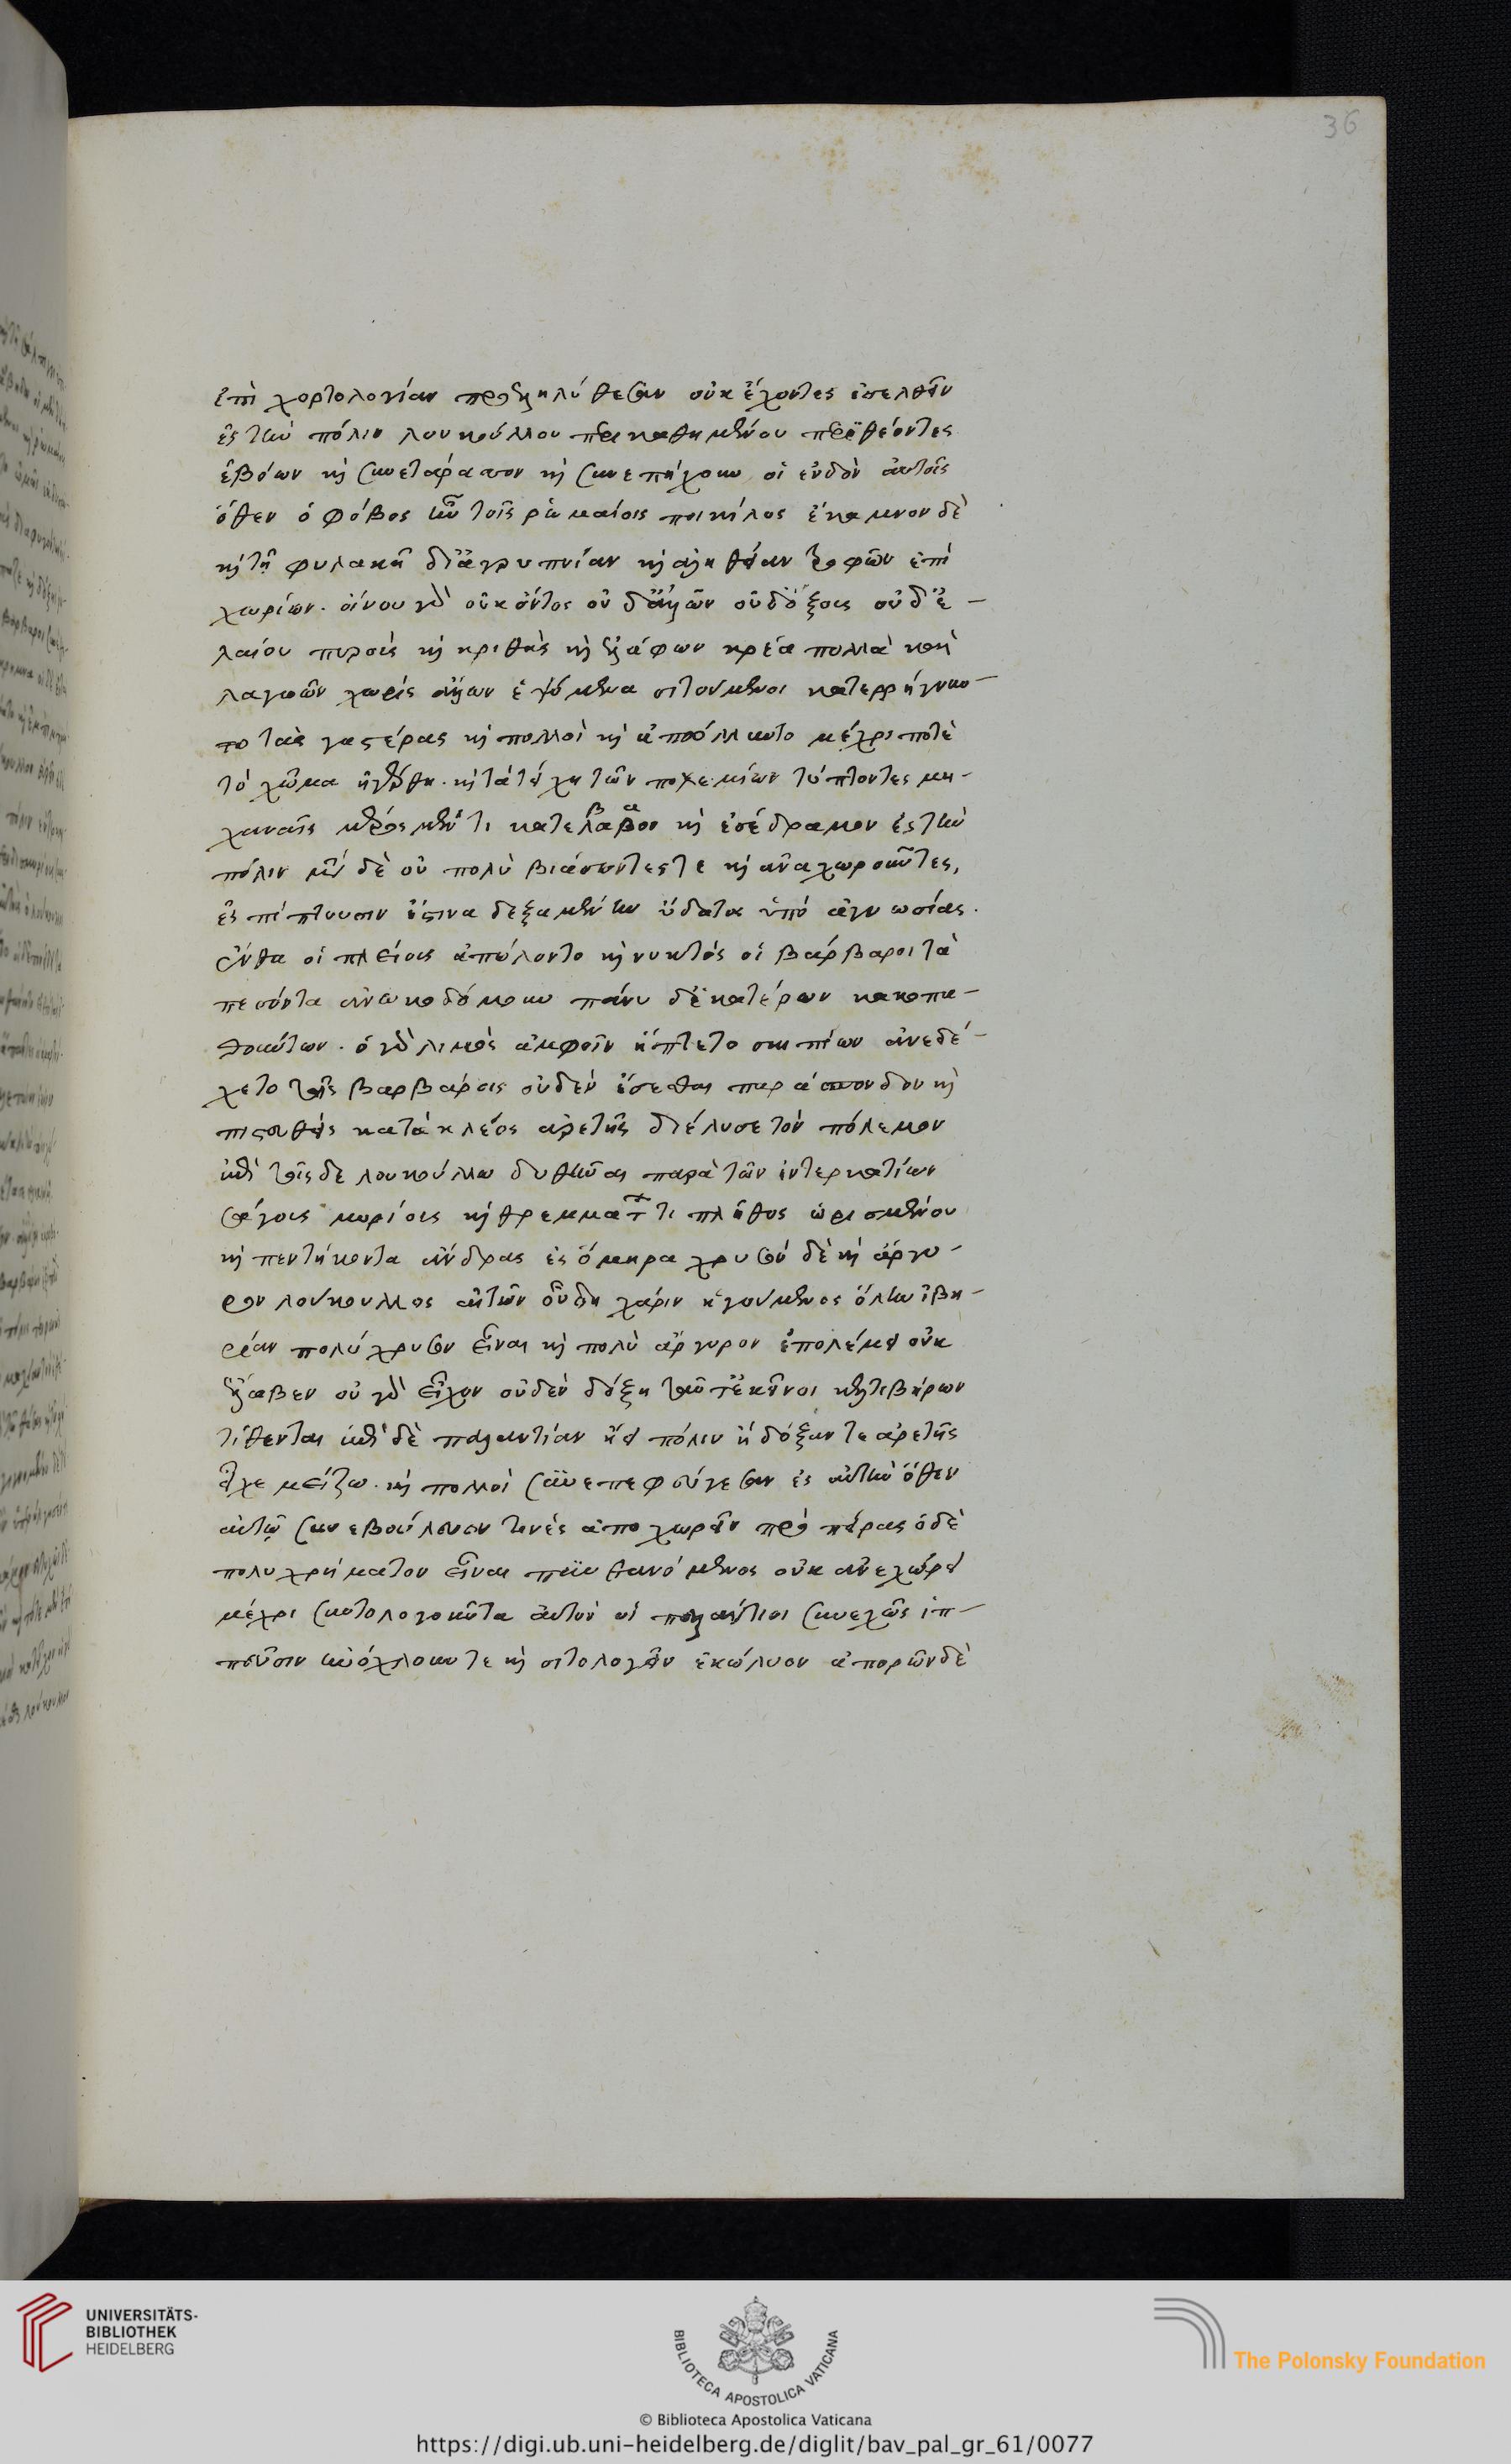 36
ἐπὶ χορτολογίαν προεξεληλύθεσαν οὐκ ἔχοντες ἐσελθεῖν
ἐς τὴν πόλιν λουκούλλου περικαθημένου περιθέοντες
ἐβόων καὶ συνετάρασσον καὶ συνεπήχουν οἱ ἔνδον αὐτοῖς
ὅθεν ὁ φόβος ἦν τοῖς ῥωμαίοις ποικίλος ἔκαμνον δὲ
καὶ τῇ φυλακῇ δι' ἀγρυπνίαν καὶ ἀήθειαν τροφῶν ἐπι
χωρίων. οἴνου γὰρ οὐκ ὄντος οὐδ' ἁλῶν οὐδ' ὄξους οὐδ' ἐ-
λαίου πυροὺς καὶ κριθὰς καὶ ἐλάφων κρέα πολλὰ καὶ
λαγωῶν χωρὶς ἁλῶν ἑψόμενα σιτούμενοι κατερρήγνυν-
το τὰς γαστέρας καὶ πολλοὶ καὶ ἀπώλλυντο μέχρι ποτὲ
τὸ χῶμα ἠγέρθη. καὶ τὰ τείχη τῶν πολεμίων τύπτοντες μη-
χαναῖς μέρος μέν τι κατέβαλον καὶ ἐσέδραμον ἐς τὴν
πόλιν μετὰ δὲ οὐ πολὺ βιασθέντες τε καὶ ἀναχωροῦντες,
ἐσπίπτουσιν ἔς τινα δεξαμενὴν ὕδατος ὑπὸ ἀγνωσίας.
ἔνθα οἱ πλείους ἀπώλοντο καὶ νυκτὸς οἱ βάρβαροι τὰ
πεσόντα ἀνωκοδόμουν πάνυ δ' ἑκατέρων κακοπα-
θούντων. ὁ γὰρ λιμὸς ἀμφοῖν ἥπτετο σκιπίων ἀνεδέ-
χετο τοῖς βαρβάροις οὐδὲν ἔσεσθαι παράσπονδον καὶ
πιστευθεὶς κατὰ κλέος ἀρετῆς διέλυσε τὸν πόλεμον
ἐπὶ τοῖσδε λουκούλλῳ δοθῆναι παρὰ τῶν ἰντερκατίων
σάγους μυρίους καὶ θρεμμάτων τι πλῆθος ὡρισμένου
καὶ πεντήκοντα ἄνδρας ἐς ὅμηρα χρυσὸν δὲ καὶ ἄργυ-
ρον λούκουλλος αἰτῶν οὗ δὴ χάριν ἡγούμενος ὅλην ἰβη-
ρίαν πολύχρυσον εἶναι καὶ πολυάργυρον ἐπολέμει οὐκ
ἔλαβεν οὐ γὰρ εἶχον οὐδ' ἐν δόξῃ ταῦτ' ἐκεῖνοι κελτιβήρων
τίθενται ἐπὶ δὲ παλαντίαν ᾔει πόλιν ἣ δόξαν τε ἀρετῆς
εἶχε μείζω. καὶ πολλοὶ συνεπεφεύγεσαν ἐς αὐτὴν ὅθεν
αὐτῷ συνεβούλευον τινὲς ἀποχωρεῖν πρὸ πείρας ὁ δὲ
πολυχρήματον εἶναι πυνθανόμενος οὐκ ἀνεχώρει
μέχρι σιτολογοῦντα αὐτὸν οἱ παλάντιοι συνεχῶς ἱπ-
πεῦσιν ἠνόχλουν τε καὶ σιτολογεῖν ἐκώλυον ἀπορῶν δὲ
UNIVERSITÄTS-
BIBLIOTHEK
HEIDELBERG
BIBLIOTECA APOSTOLICA VATICANA
© Biblioteca Apostolica Vaticana
The Polonsky Foundation
https://digi.ub.uni-heidelberg.de/diglit/bav_pal_gr_61/0077